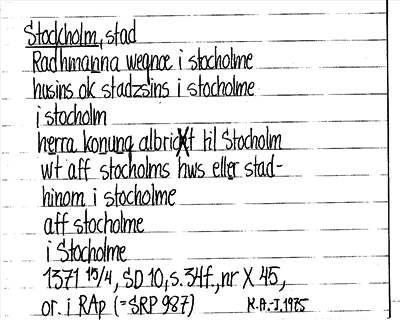 Stockholm, stad
Radhmanna wegnæ i stocholme
husins ok stadzsins i stocholme
i stocholm
herra konung albrickt til Stocholm
wt aff stocholms hws eller stad-
hinom i stocholme
aff stocholme
i Stocholme
1371 15/4, SD 10, s. 34f., nr X 45,
or. i RAp (= SRP 987) K.A.-J. 1975